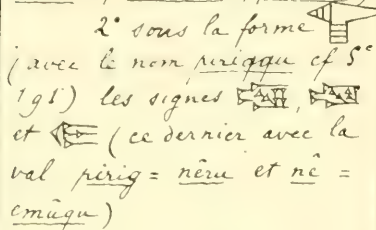 2° sous la forme
(avec le nom piriqqu cf 5°
1g1) les signes
et (ce dernier avec la
val pirig = nêru et nê =
emûqu)